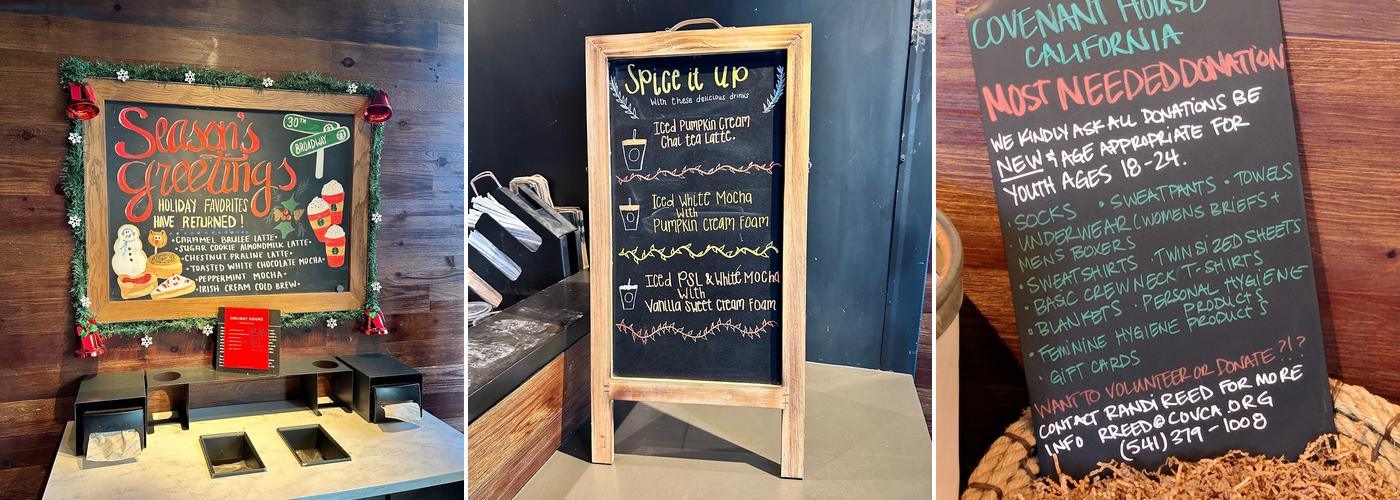 Season's
greetings
30TH
BROADWAY
HOLIDAY FAVORITES
HAVE RETURNED!
• CARAMEL BRULEE LATTE •
• SUGAR COOKIE ALMONDMILK LATTE •
• CHESTNUT PRALINE LATTE •
• TOASTED WHITE CHOCOLATE MOCHA •
• PEPPERMINT MOCHA •
• IRISH CREAM COLD BREW •
HOLIDAY HOURS
Spice it up
With these delicious drinks
Iced Pumpkin Cream
Chai tea Latte.
Iced White Mocha
With
Pumpkin Cream Foam
Iced PSL & White Mocha
With
Vanilla Sweet Cream Foam
COVENANT HOUSE
CALIFORNIA
MOST NEEDED DONATION
WE KINDLY ASK ALL DONATIONS BE
NEW & AGE APPROPRIATE FOR
YOUTH AGES 18-24.
SOCKS • SWEATPANTS • TOWELS
UNDERWEAR (WOMENS BRIEFS +
MENS BOXERS
• SWEATSHIRTS • TWIN SIZED SHEETS
• BASIC CREW NECK T-SHIRTS
• BLANKETS • PERSONAL HYGIENE
PRODUCTS
• FEMININE HYGIENE PRODUCTS
• GIFT CARDS
WANT TO VOLUNTEER OR DONATE?!?
CONTACT RANDI REED FOR MORE
INFO RREED@COVCA.ORG
(541) 379-1008